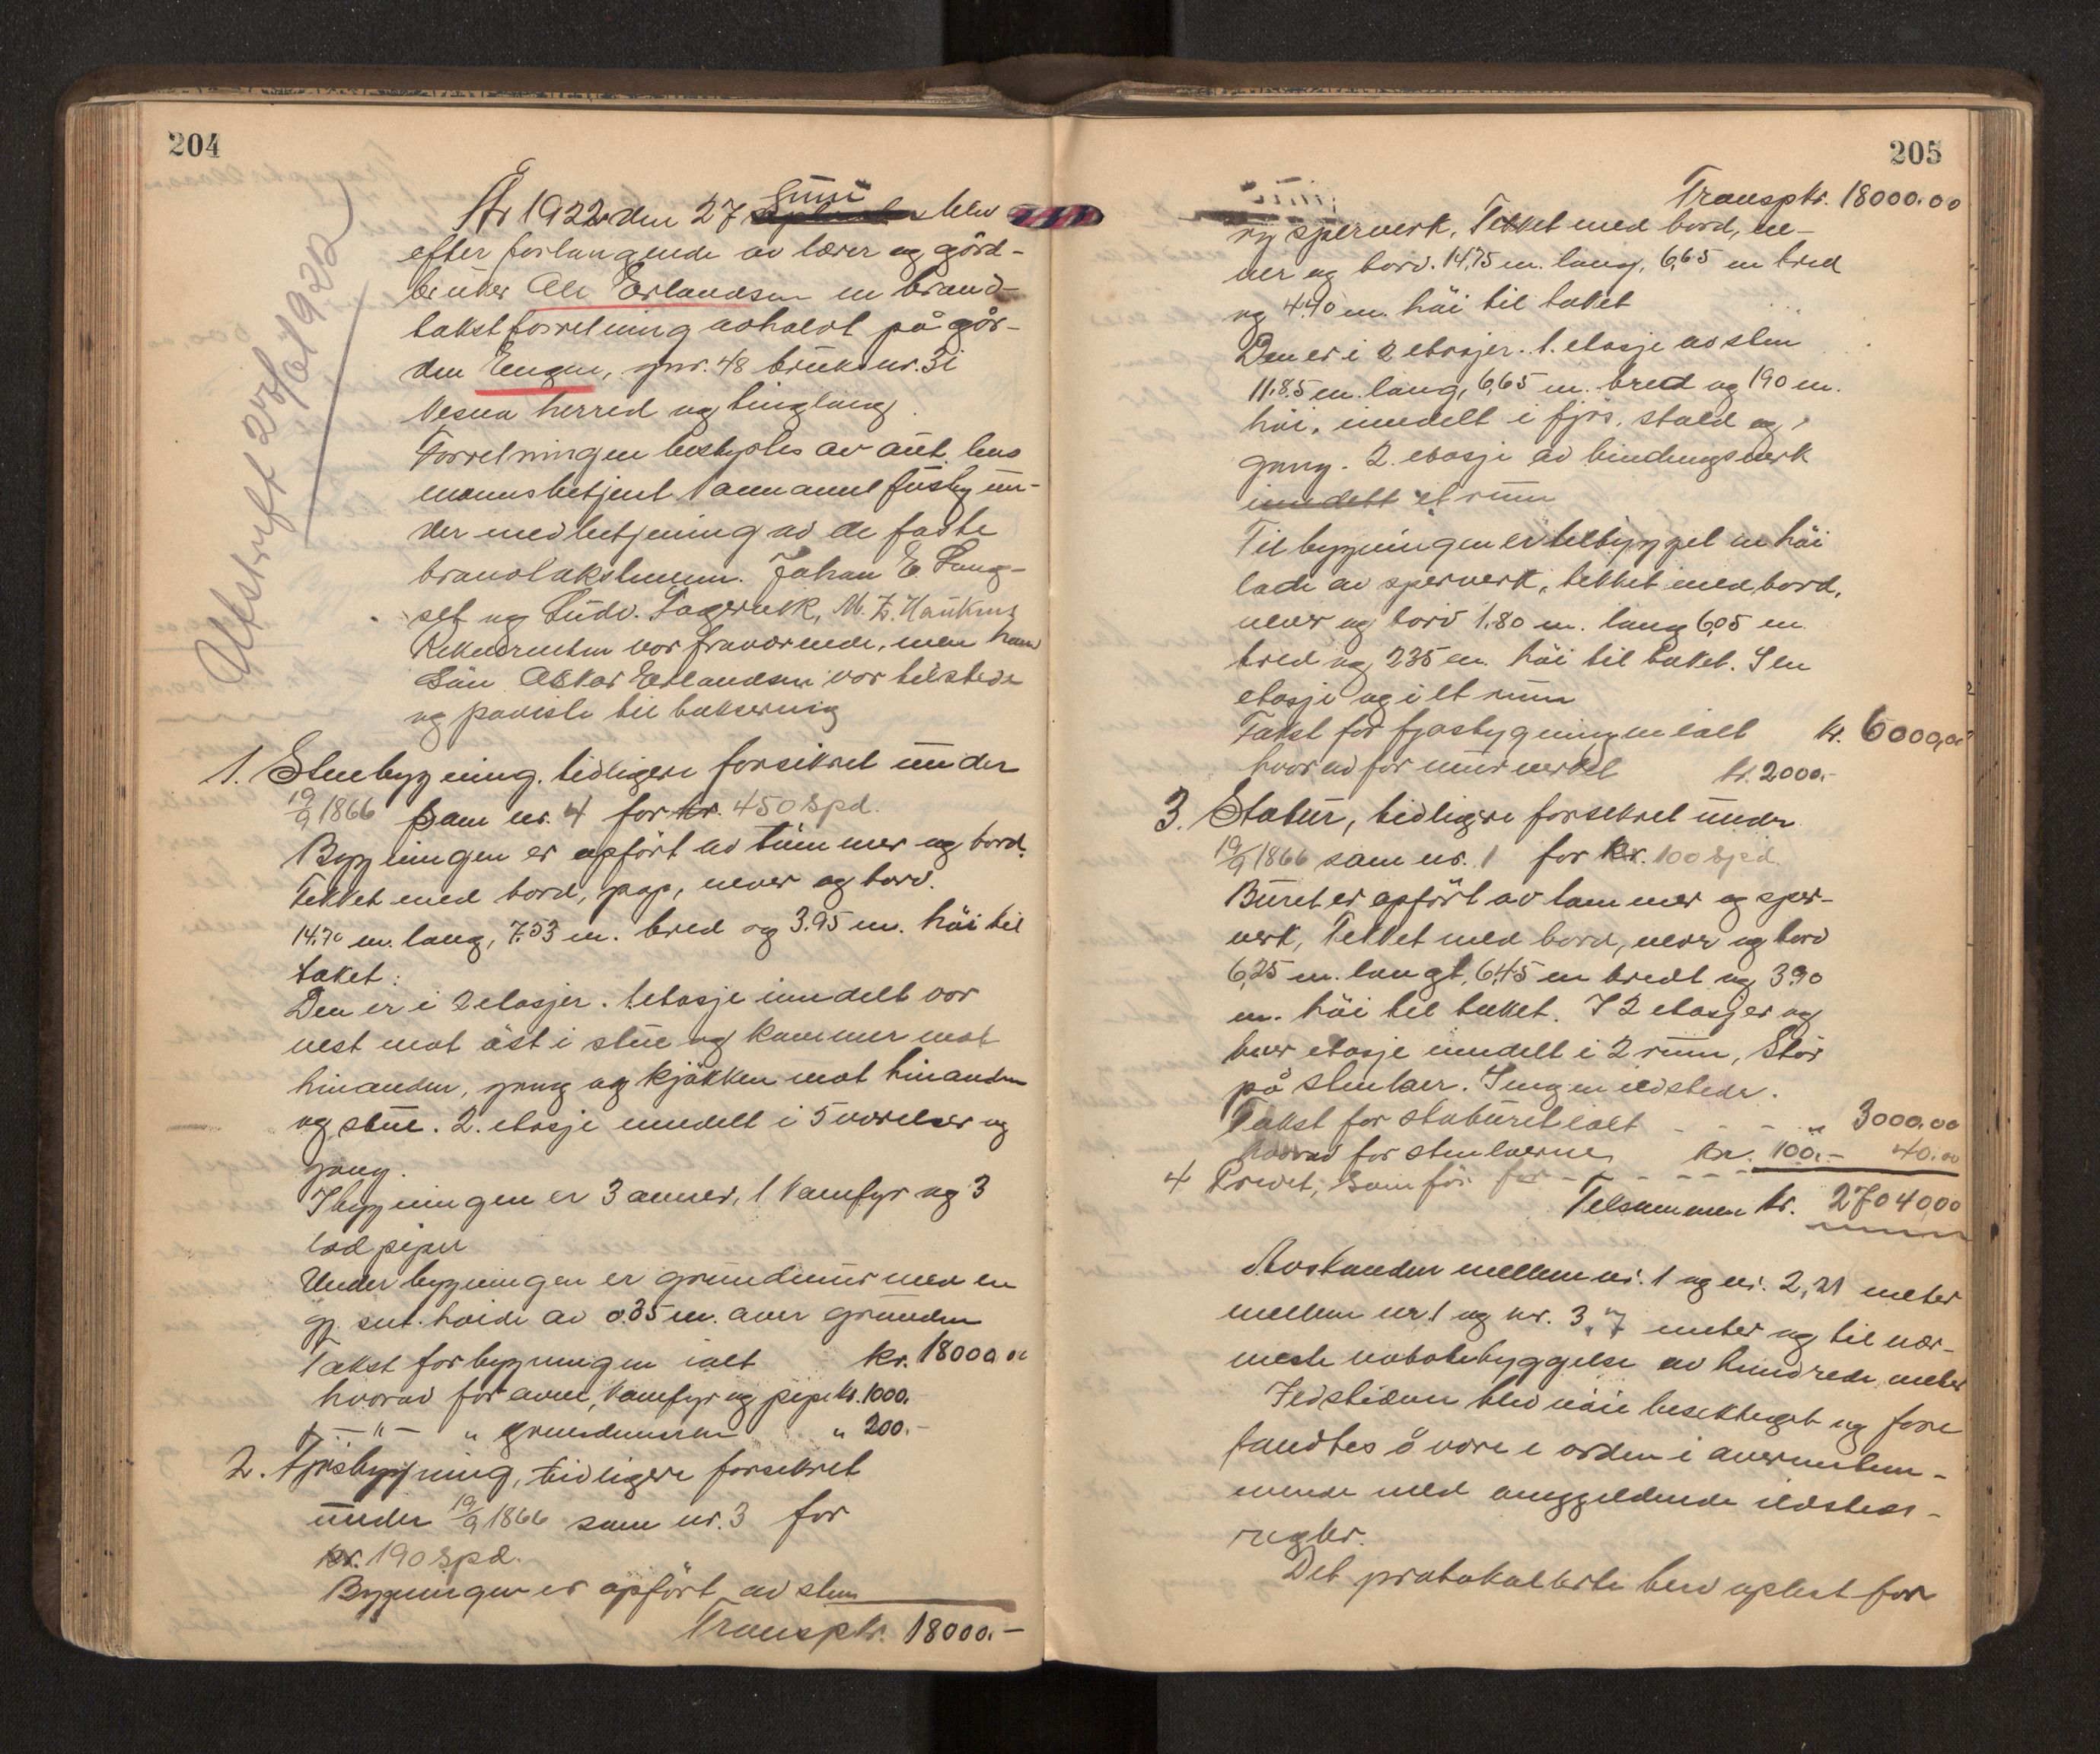 204
Utskrift 28/6 1922
År 1922 den 27 Juni blev
efter forlangende av lærer og gård-
bruker Ole Erlandsen en brand-
takstforretning avholdt på går-
den Engen, gnr. 48 bruksnr. 3 i
Vesna herred og tinglang.
Forretningen bestyrtes av aut. lens
mannsbetjent Fusby un-
der medbetjening av de faste
brandtakstmenn. Johan E. Lang-
set og Ludv. Lagervik, M. Z. Haukenes
Rekvirenten var fraværende, men hans
Sön Oskar Erlandsen var tilstede
og paviste til taksering
1. Stuebygning, tidligere forsikret under
19/9 1866 som nr. 4 for kr. 450 Spd.
Bygningen er opført av tümmer og bord.
Tekket med bord, pap, never og torv.
14.70 m. lang, 7.53 m. bred og 3.95 m. höi til
taket:
Den er i 2 etasjer. 1. etasje inndelt vor
vest mot öst i stue og kammer mot
hinanden, gang og kjökken mot hinanden
og stue. 2. etasje inndelt i 5 værelser og
gang.
I bygningen er 3 ovner, 1 kamfyr og 3
lod piper
Under bygningen er grundmur med en
gj. snt. høide av 0.35 m. over grunden
Takst for bygningen ialt kr. 18000.00
hvorav for ovne, kamfyr og pipe kr. 1000.
– " – " grundmuren " 200.–
2. Fjøsbygning, tidligere forsikret
under 19/9 1866 som nr. 3 for
kr. 190 Spd.
Bygningen er opført av sten
Transptr. 18000.–
205
Transptr. 18000.00
og sperverk, Tekket med bord, ne-
ver og torv. 14,75 m. lang, 6,65 m bred
og 4.40 m. höi til taket
Den er i 2 etasjer. 1. etasje av sten
11.85 m. lang, 6,65 m. bred og 190 m.
höi, inndelt i fjös, stald og
gang. 2. etasje av bindingsverk
inndelt et rum
Til bygningen er tilbygget en höi
lade av sperverk, tekket med bord,
never og torv 1.80 m. lang 6,05 m
bred og 235 m. höi til taket. I en
etasje og i et rum
Takst for fjøsbygningen ialt kr. 6000,00
hvorav for murverket kr. 2000.–
3. Stabur, tidligere forsikret under
19/9 1866 som nr. 1 for kr. 100 Spd.
Buret er opført av tømmer og sper-
verk, Tekket med bord, never og torv
6,25 m. langt, 6,45 m bredt og 3.90
m. höi til taket. I 2 etasjer og
hver etasje inndelt i 2 rum, Står
på stenlaer. Ingen ildsteder.
Takst for staburet ialt – – – " 3000.00
hvorav for stenlaerne kr. 100.– 40.00
4 Privet, som för for – – – –
Tilsammen kr. 27040,00
Avstanden mellem nr. 1 og nr. 2, 21 meter
mellem nr. 1 og nr. 3, 7 meter og til nær-
meste nabobebyggelse av hundrede meter
Ildstederne blev nöie besiktiget og fore
fandtes å være i orden i overenstem-
mende med omgjeldende ildsteds-
regler.
Det protokollerte blev oplest for